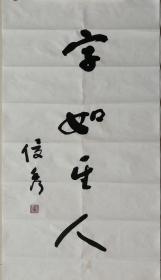 字如其人
俊彦